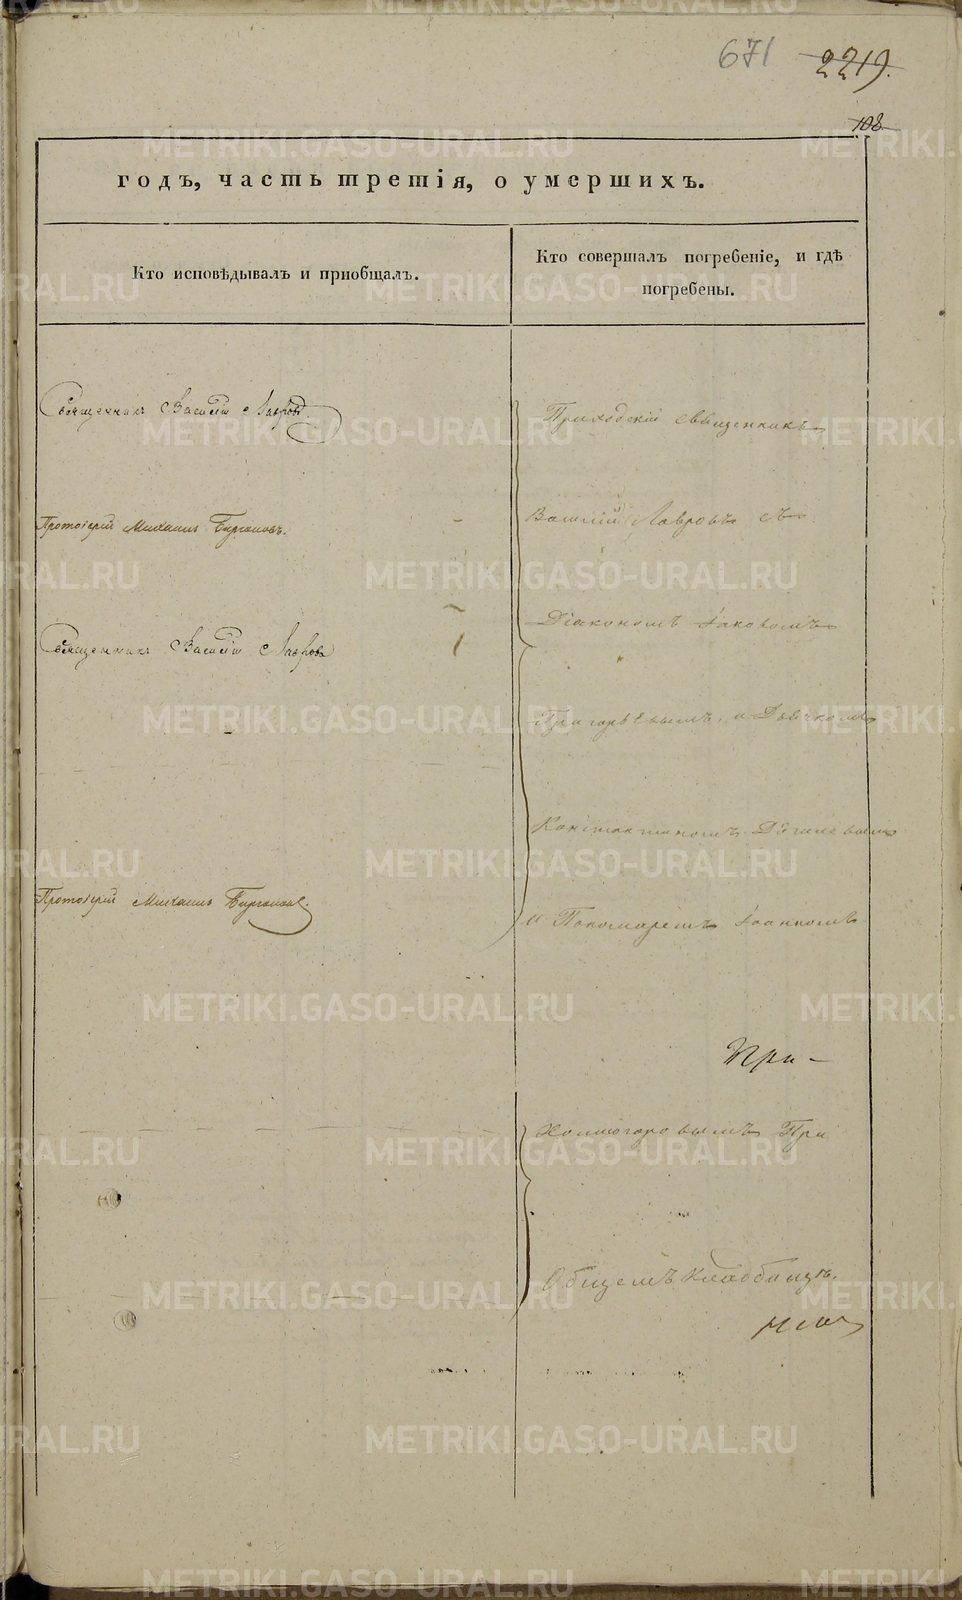 671 2219.
108
годъ, часть третія, о умершихъ.
Кто исповѣдывалъ и пріобщалъ.
Кто совершалъ погребеніе, и гдѣ
погребены.
Священникъ Василій Лавровъ.
Приходскій священникъ
Протоіерей Михаилъ
Василій Лавровъ съ
Діакономъ Іаковомъ
Священникъ Василій Лавровъ
Григорьевымъ, и Дьячкомъ
Константиномъ
Протоіерей Михаилъ
и Пономаремъ Іоанномъ
При-
Холмогоровымъ При
Общемъ Кладбищѣ.
METRIKI.GASO-URAL.RU